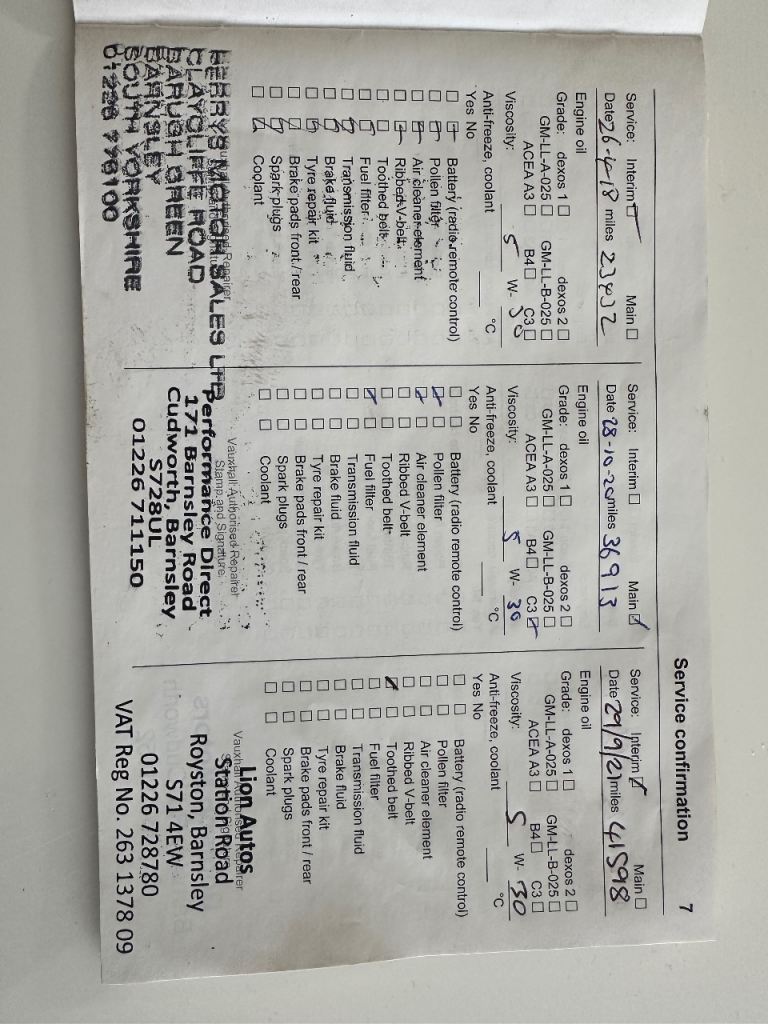 Service confirmation 7
Service: Interim Main
Date 26-4-18 miles 23432
Engine oil
Grade: dexos 1 dexos 2
GM-LL-A-025 GM-LL-B-025
ACEA A3 B4 C3
Viscosity: 5 W- 30
Anti-freeze, coolant °C
Yes No
Battery (radio remote control)
Pollen filter
Air cleaner element
Ribbed V-belt
Toothed belt
Fuel filter
Transmission fluid
Brake fluid
Tyre repair kit
Brake pads front / rear
Spark plugs
Coolant
MOTOR SALES LTD
CLAYCLIFFE ROAD
BARUGH GREEN
BARNSLEY
SOUTH YORKSHIRE
01226 776100
Service: Interim Main
Date 28-10-20 miles 36913
Engine oil
Grade: dexos 1 dexos 2
GM-LL-A-025 GM-LL-B-025
ACEA A3 B4 C3
Viscosity: 5 W- 30
Anti-freeze, coolant °C
Yes No
Battery (radio remote control)
Pollen filter
Air cleaner element
Ribbed V-belt
Toothed belt
Fuel filter
Transmission fluid
Brake fluid
Tyre repair kit
Brake pads front / rear
Spark plugs
Coolant
Vauxhall Authorised Repairer
Stamp and Signature
Performance Direct
171 Barnsley Road
Cudworth, Barnsley
S728UL
01226 711150
Service: Interim Main
Date 29/9/21 miles 41598
Engine oil
Grade: dexos 1 dexos 2
GM-LL-A-025 GM-LL-B-025
ACEA A3 B4 C3
Viscosity: 5 W- 30
Anti-freeze, coolant °C
Yes No
Battery (radio remote control)
Pollen filter
Air cleaner element
Ribbed V-belt
Toothed belt
Fuel filter
Transmission fluid
Brake fluid
Tyre repair kit
Brake pads front / rear
Spark plugs
Coolant
Vauxhall Authorised Repairer
Lion Autos
Station Road
Royston, Barnsley
S71 4EW
01226 728780
VAT Reg No. 263 1378 09